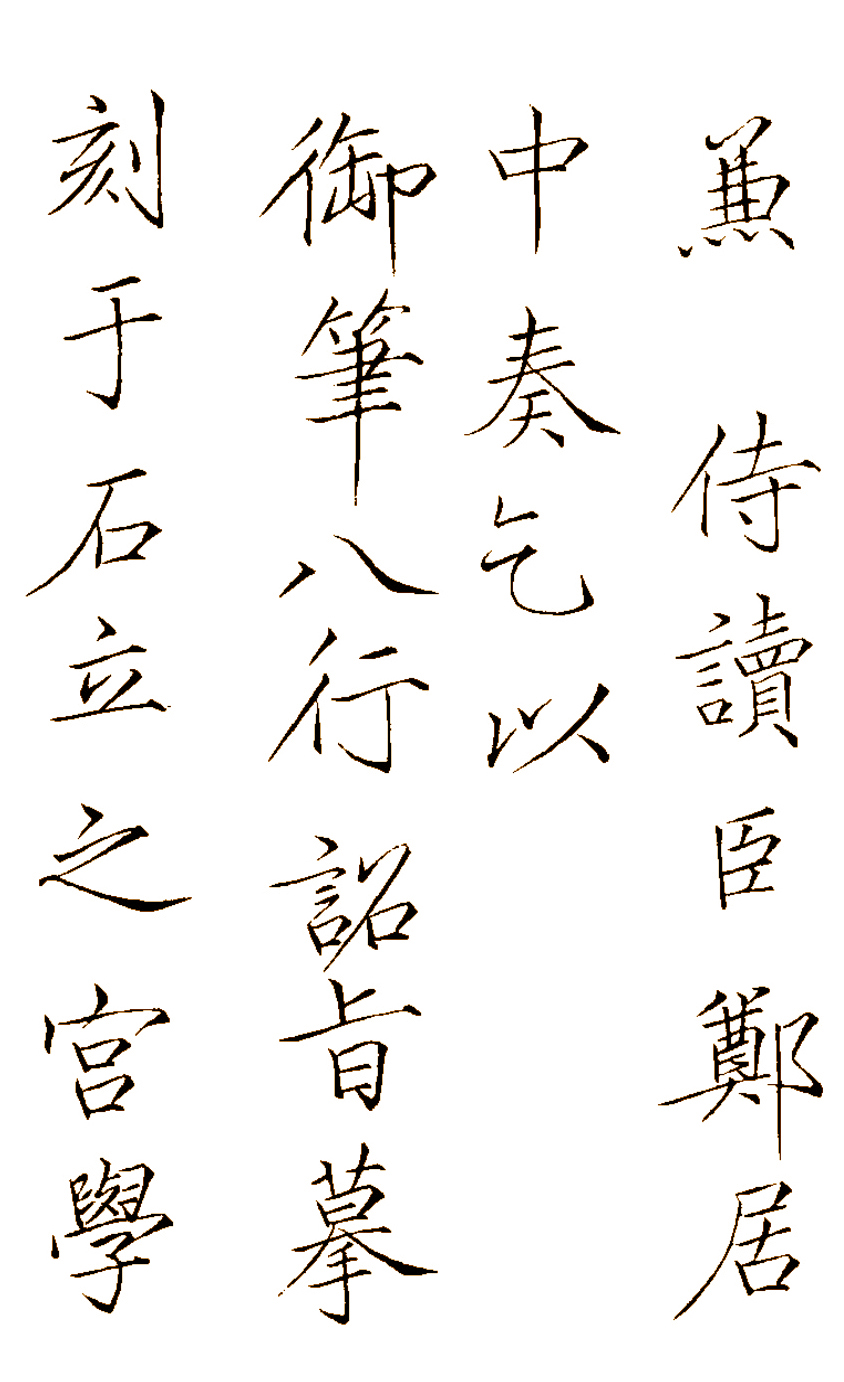 兼侍讀臣鄭居
中奏乞以
御筆八行詔旨摹
刻于石立之宮學